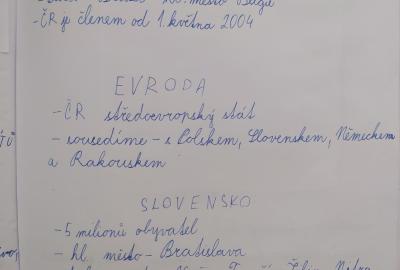 hl. město
- ČR je členem od 1. května 2004
EVRODA
- ČR středoevropský stát
- sousedíme - s Polskem, Slovenskem, Německem
a Rakouskem
SLOVENSKO
- 5 milionů obyvatel
- hl. město - Bratislava